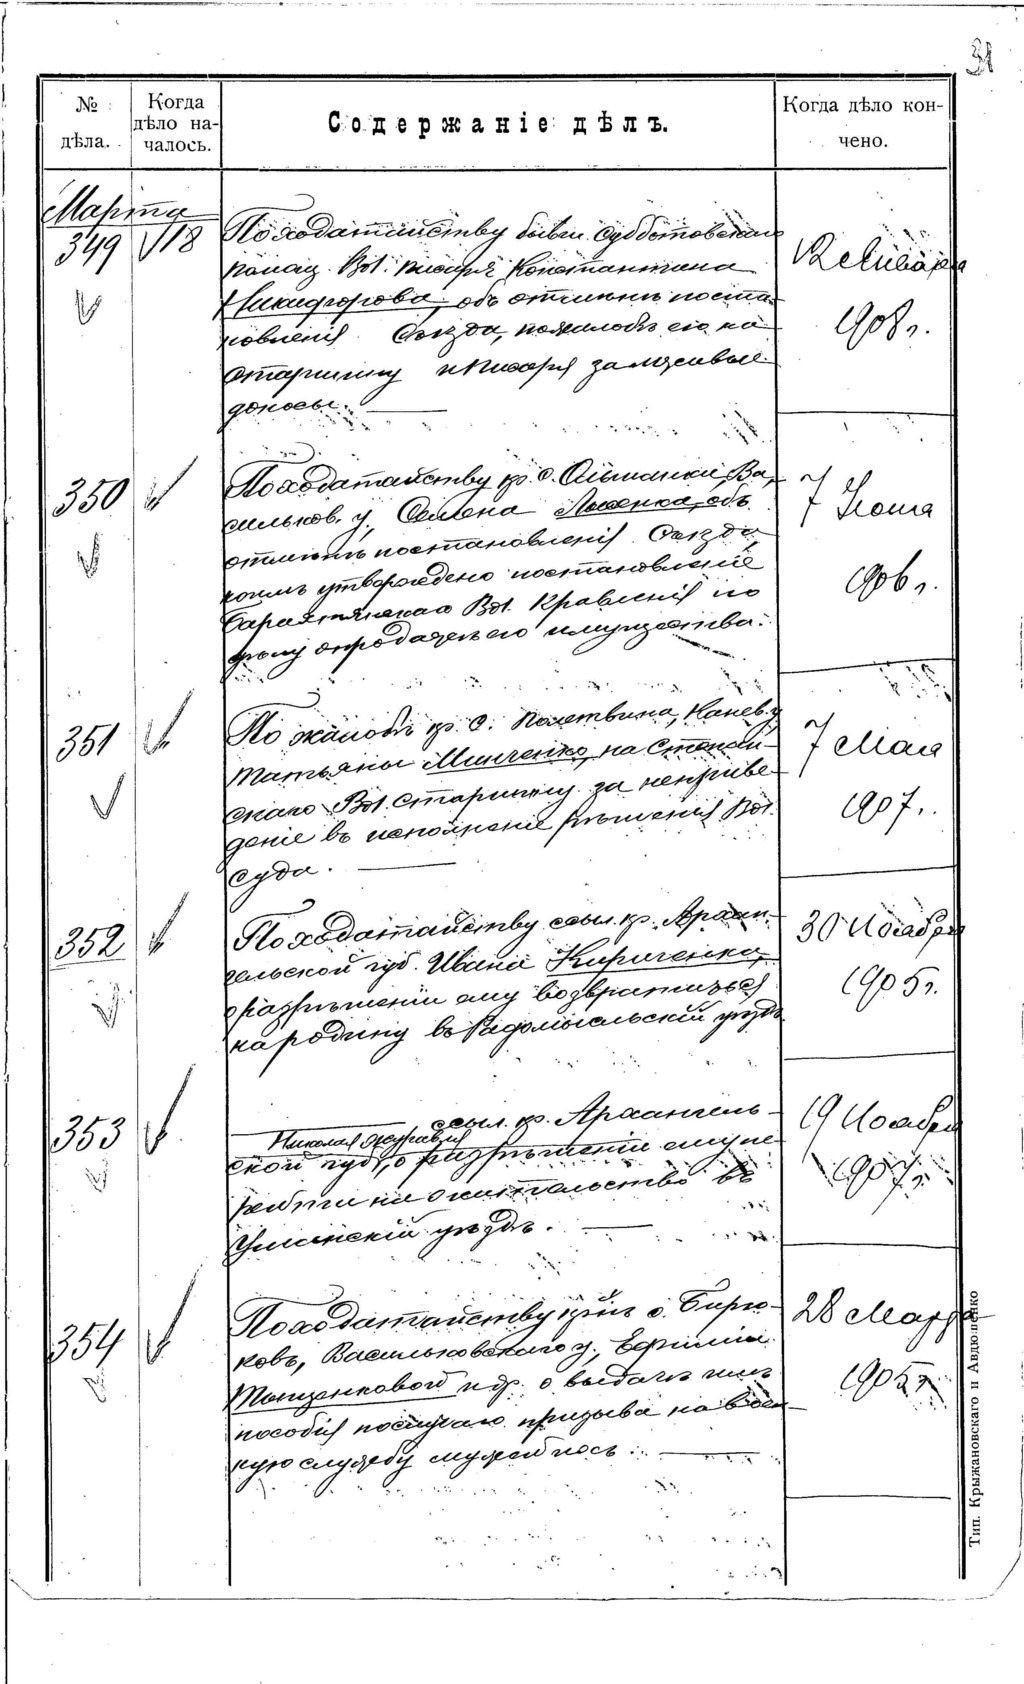 31
№ дѣла.
Когда дѣло началось.
Содержаніе дѣлъ.
Когда дѣло кончено.
Марта
349
18
По ходатайству бывш. Субботовскаго
Волос. писаря Константина
Никифорова, объ отмѣнѣ поста-
новленія Съѣзда, по жалобѣ его на
Старшину и Писаря за лживые
доносы.
12 Января
1908 г.
350
По ходатайству кр. с. Ва-
сильков. у. Семена объ
отмѣнѣ постановленія Съѣзда,
коимъ утверждено постановленіе
Вол. Правленія по
дѣлу о продажѣ его имущества.
7 Іюня
1906 г.
351
По жалобѣ кр. с. Канев. у.
Татьяны Минченко, на
Вол. Старшину за неприве-
деніе въ исполненіе рѣшенія Вол.
суда.
7 Мая
1907 г.
352
По ходатайству ссыл. кр. Архан-
гельской губ. Ивана Кириченко,
о разрѣшеніи ему возвратиться
на родину въ Радомысльскій уѣздъ
30 Ноября
1905 г.
353
ссыл. кр. Архангель-
Николая Журавля
ской губ., о разрѣшеніи ему пе-
рейти на жительство въ
Уманскій уѣздъ.
19 Ноября
1907 г.
354
По ходатайству кр-нъ с. Бирю-
ковъ, Васильковскаго у., Евфиміи
Тыщенковой и др. о выдачѣ имъ
пособія по случаю призыва на воен-
ную службу мужей ихъ.
28 Марта
1905 г.
Тип. Крыжановскаго и Авдюшенко